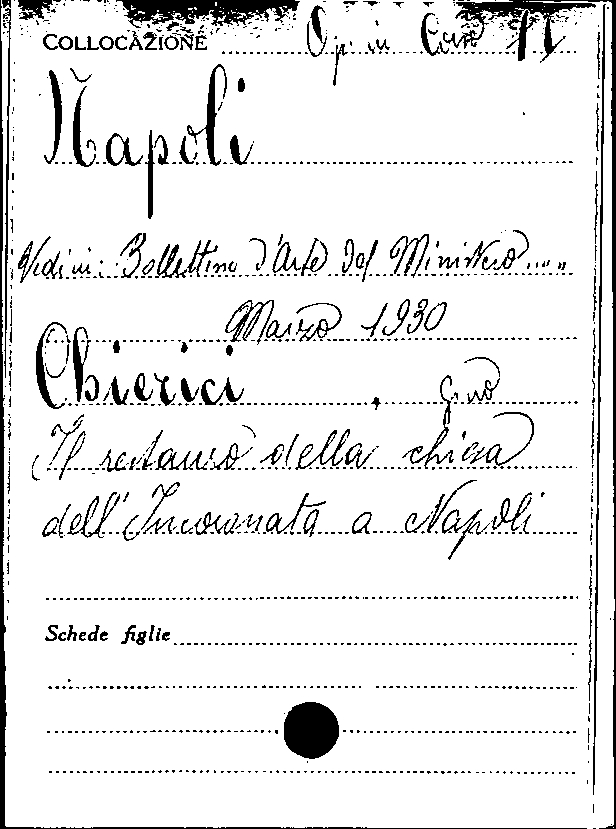 COLLOCAZIONE Op. in Cons 11
Napoli
Vedi in: Bollettino d'Arte del Ministero....
Marzo 1930
Chierici, Gino
Il restauro della chiesa
dell'Incoronata a Napoli
Schede figlie